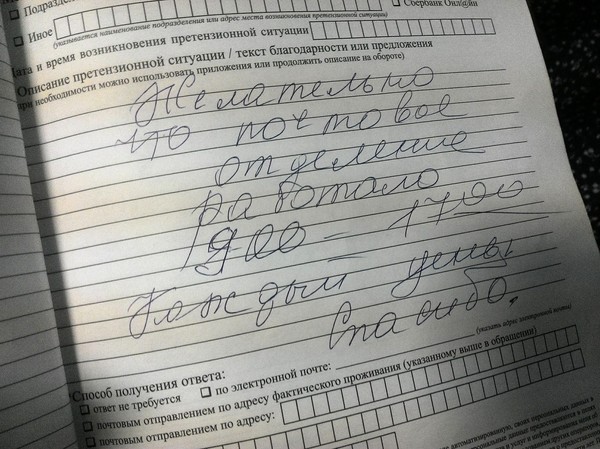 Подразд
Сбербанк Онл@йн
Иное
(указывается наименование подразделения или адрес места возникновения претензионной ситуации)
Дата и время возникновения претензионной ситуации
Описание претензионной ситуации / текст благодарности или предложения
при необходимости можно использовать приложения или продолжить описание на обороте)
Желательно
что почтовое
отделение
работало
900 – 1700
Каждый день
Спасибо.
(указать адрес электронной почты)
Способ получения ответа:
ответ не требуется
по электронной почте:
почтовым отправлением по адресу фактического проживания (указанному выше в обращении)
почтовым отправлением по адресу: